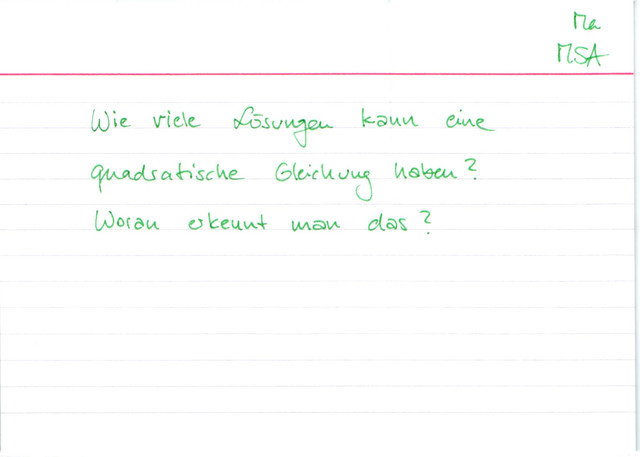 Ma
MSA
Wie viele Lösungen kann eine
quadratische Gleichung haben?
Woran erkennt man das?